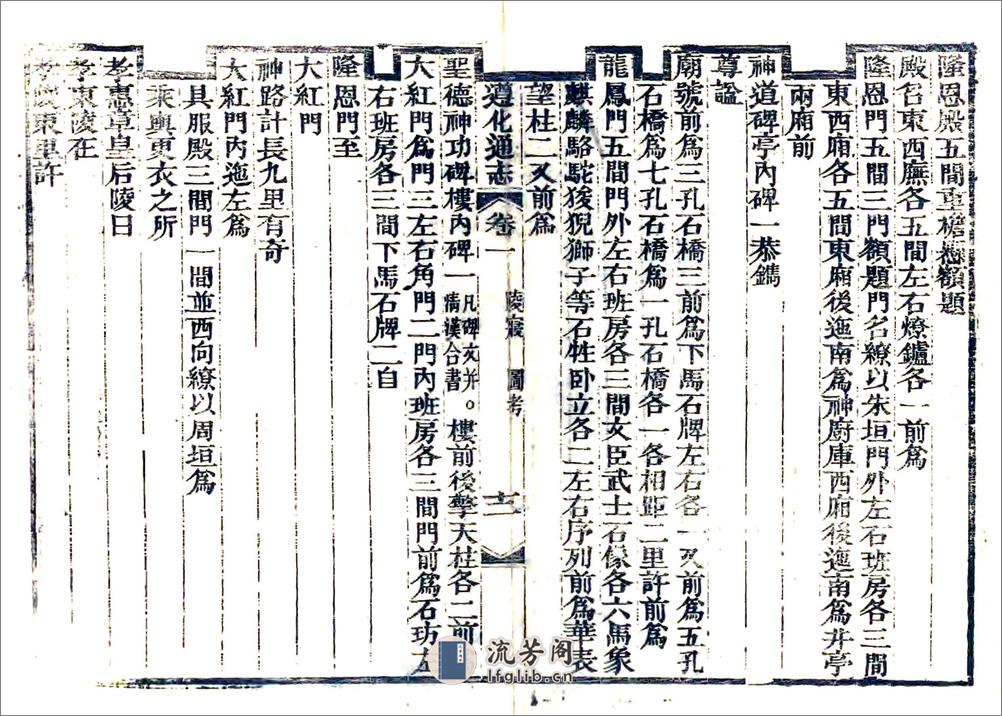 隆恩殿五間重檐懸額題
殿名東西廡各五間左右燎鑪各一前爲
隆恩門五間三門額題門名繚以朱垣門外左右班房各三間
東西廂各五間東廂後迤南爲神廚庫西廂後迤南爲井亭
兩廂前
神道碑亭內碑一恭鐫
尊諡
廟號前爲三孔石橋三前爲下馬石牌左右各一又前爲五孔
石橋爲七孔石橋爲一孔石橋各一各相距二里許前爲
龍鳳門五間門外左右班房各三間文臣武士石像各六馬象
麒麟駱駝狻猊獅子等石牲臥立各二左右序列前爲華表
望柱二又前爲
遵化通志 卷一 陵寢 圖考 十二
聖德神功碑樓內碑一凡碑文并清漢合書。樓前後擎天柱各二前
大紅門爲門三左右角門二門內班房各三間門前爲石坊左
右班房各三間下馬石牌二自
隆恩門至
大紅門
神路計長九里有奇
大紅門內迤左爲
具服殿三間門一間並西向繚以周垣爲
乘輿更衣之所
孝惠章皇后陵曰
孝東陵在
孝陵東里許
流芳阁
lfglib.cn